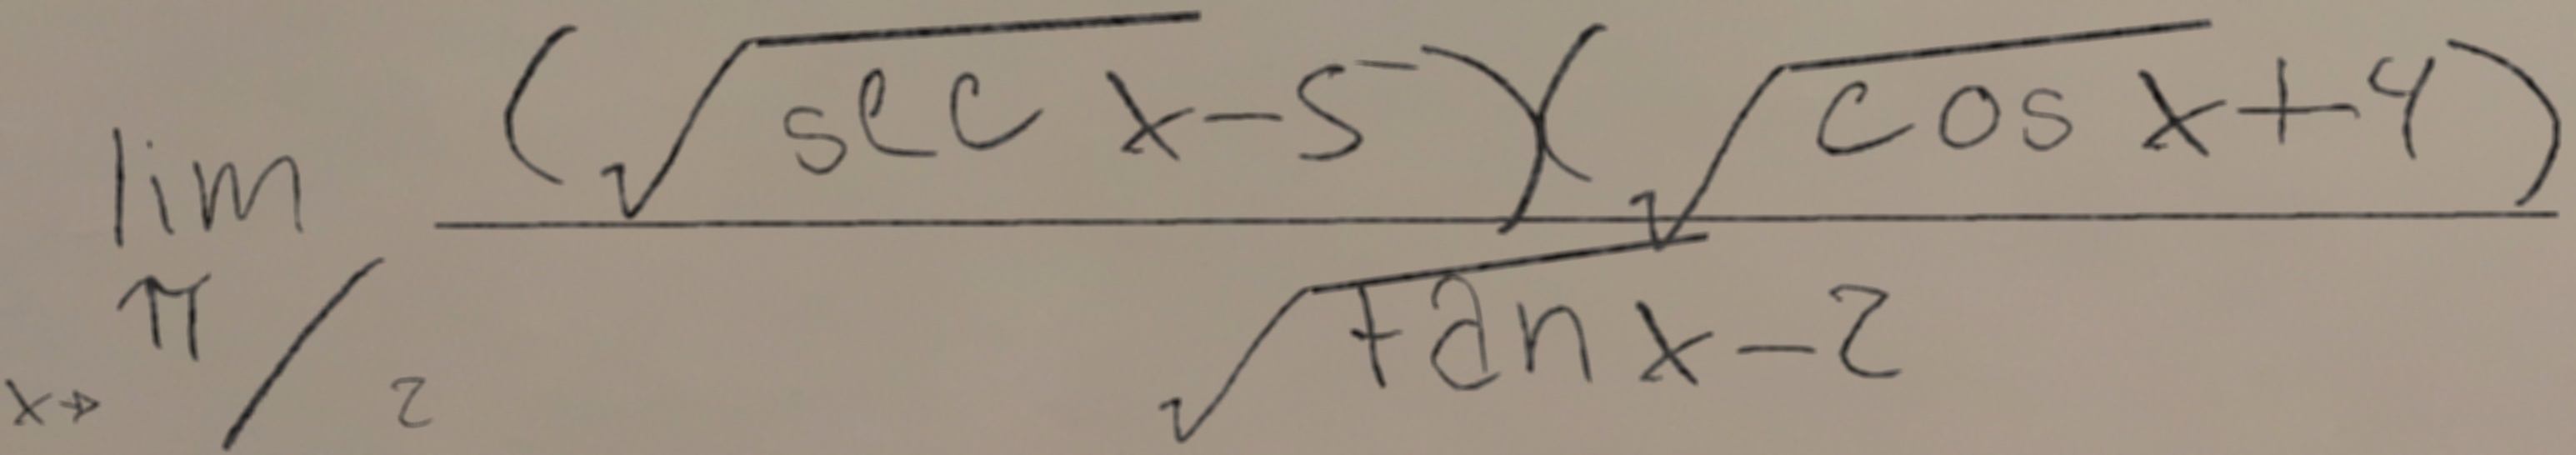 lim x→π/2 (√(sec x-5))(√(cos x+4)) / √(tan x-2)